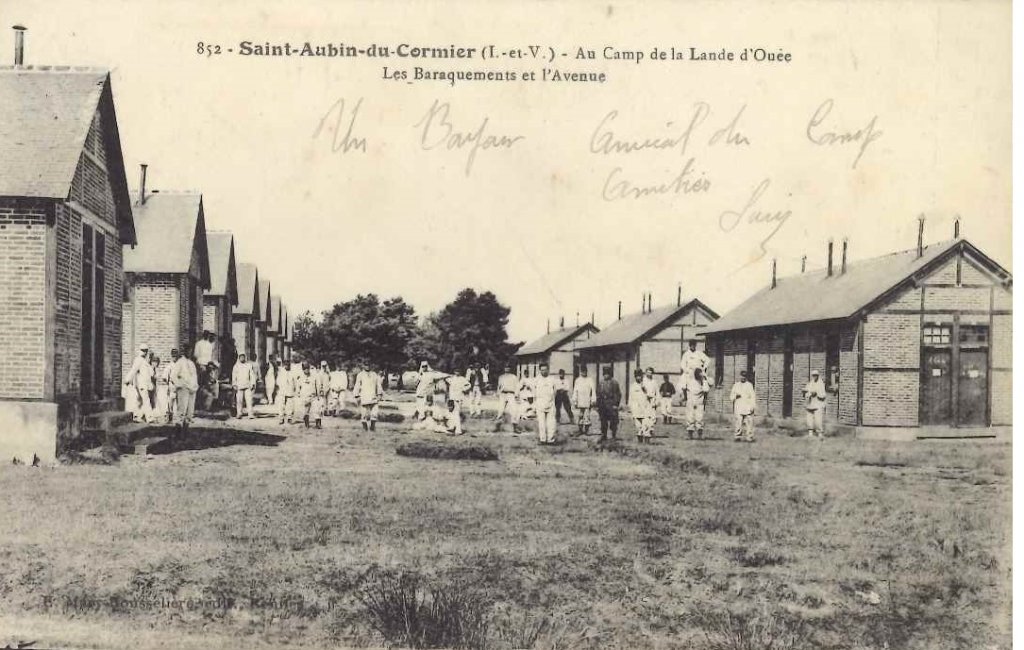 852 - Saint-Aubin-du-Cormier (I.-et-V.) - Au Camp de la Lande d'Ouée
Les Baraquements et l'Avenue
Un amical du Camp
Amitiés
E. Mary-Rousselière, édit., Rennes